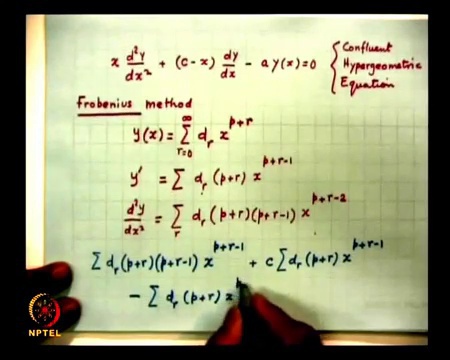 x d²y/dx² + (c-x) dy/dx - a y(x) = 0 { Confluent
Hypergeometric
Equation
Frobenius method
y(x) = ∑_{r=0}^{∞} d_r x^{p+r}
y' = ∑ d_r (p+r) x^{p+r-1}
d²y/dx² = ∑_r d_r (p+r)(p+r-1) x^{p+r-2}
∑ d_r (p+r)(p+r-1) x^{p+r-1} + c ∑ d_r (p+r) x^{p+r-1}
- ∑ d_r (p+r) x^p
NPTEL